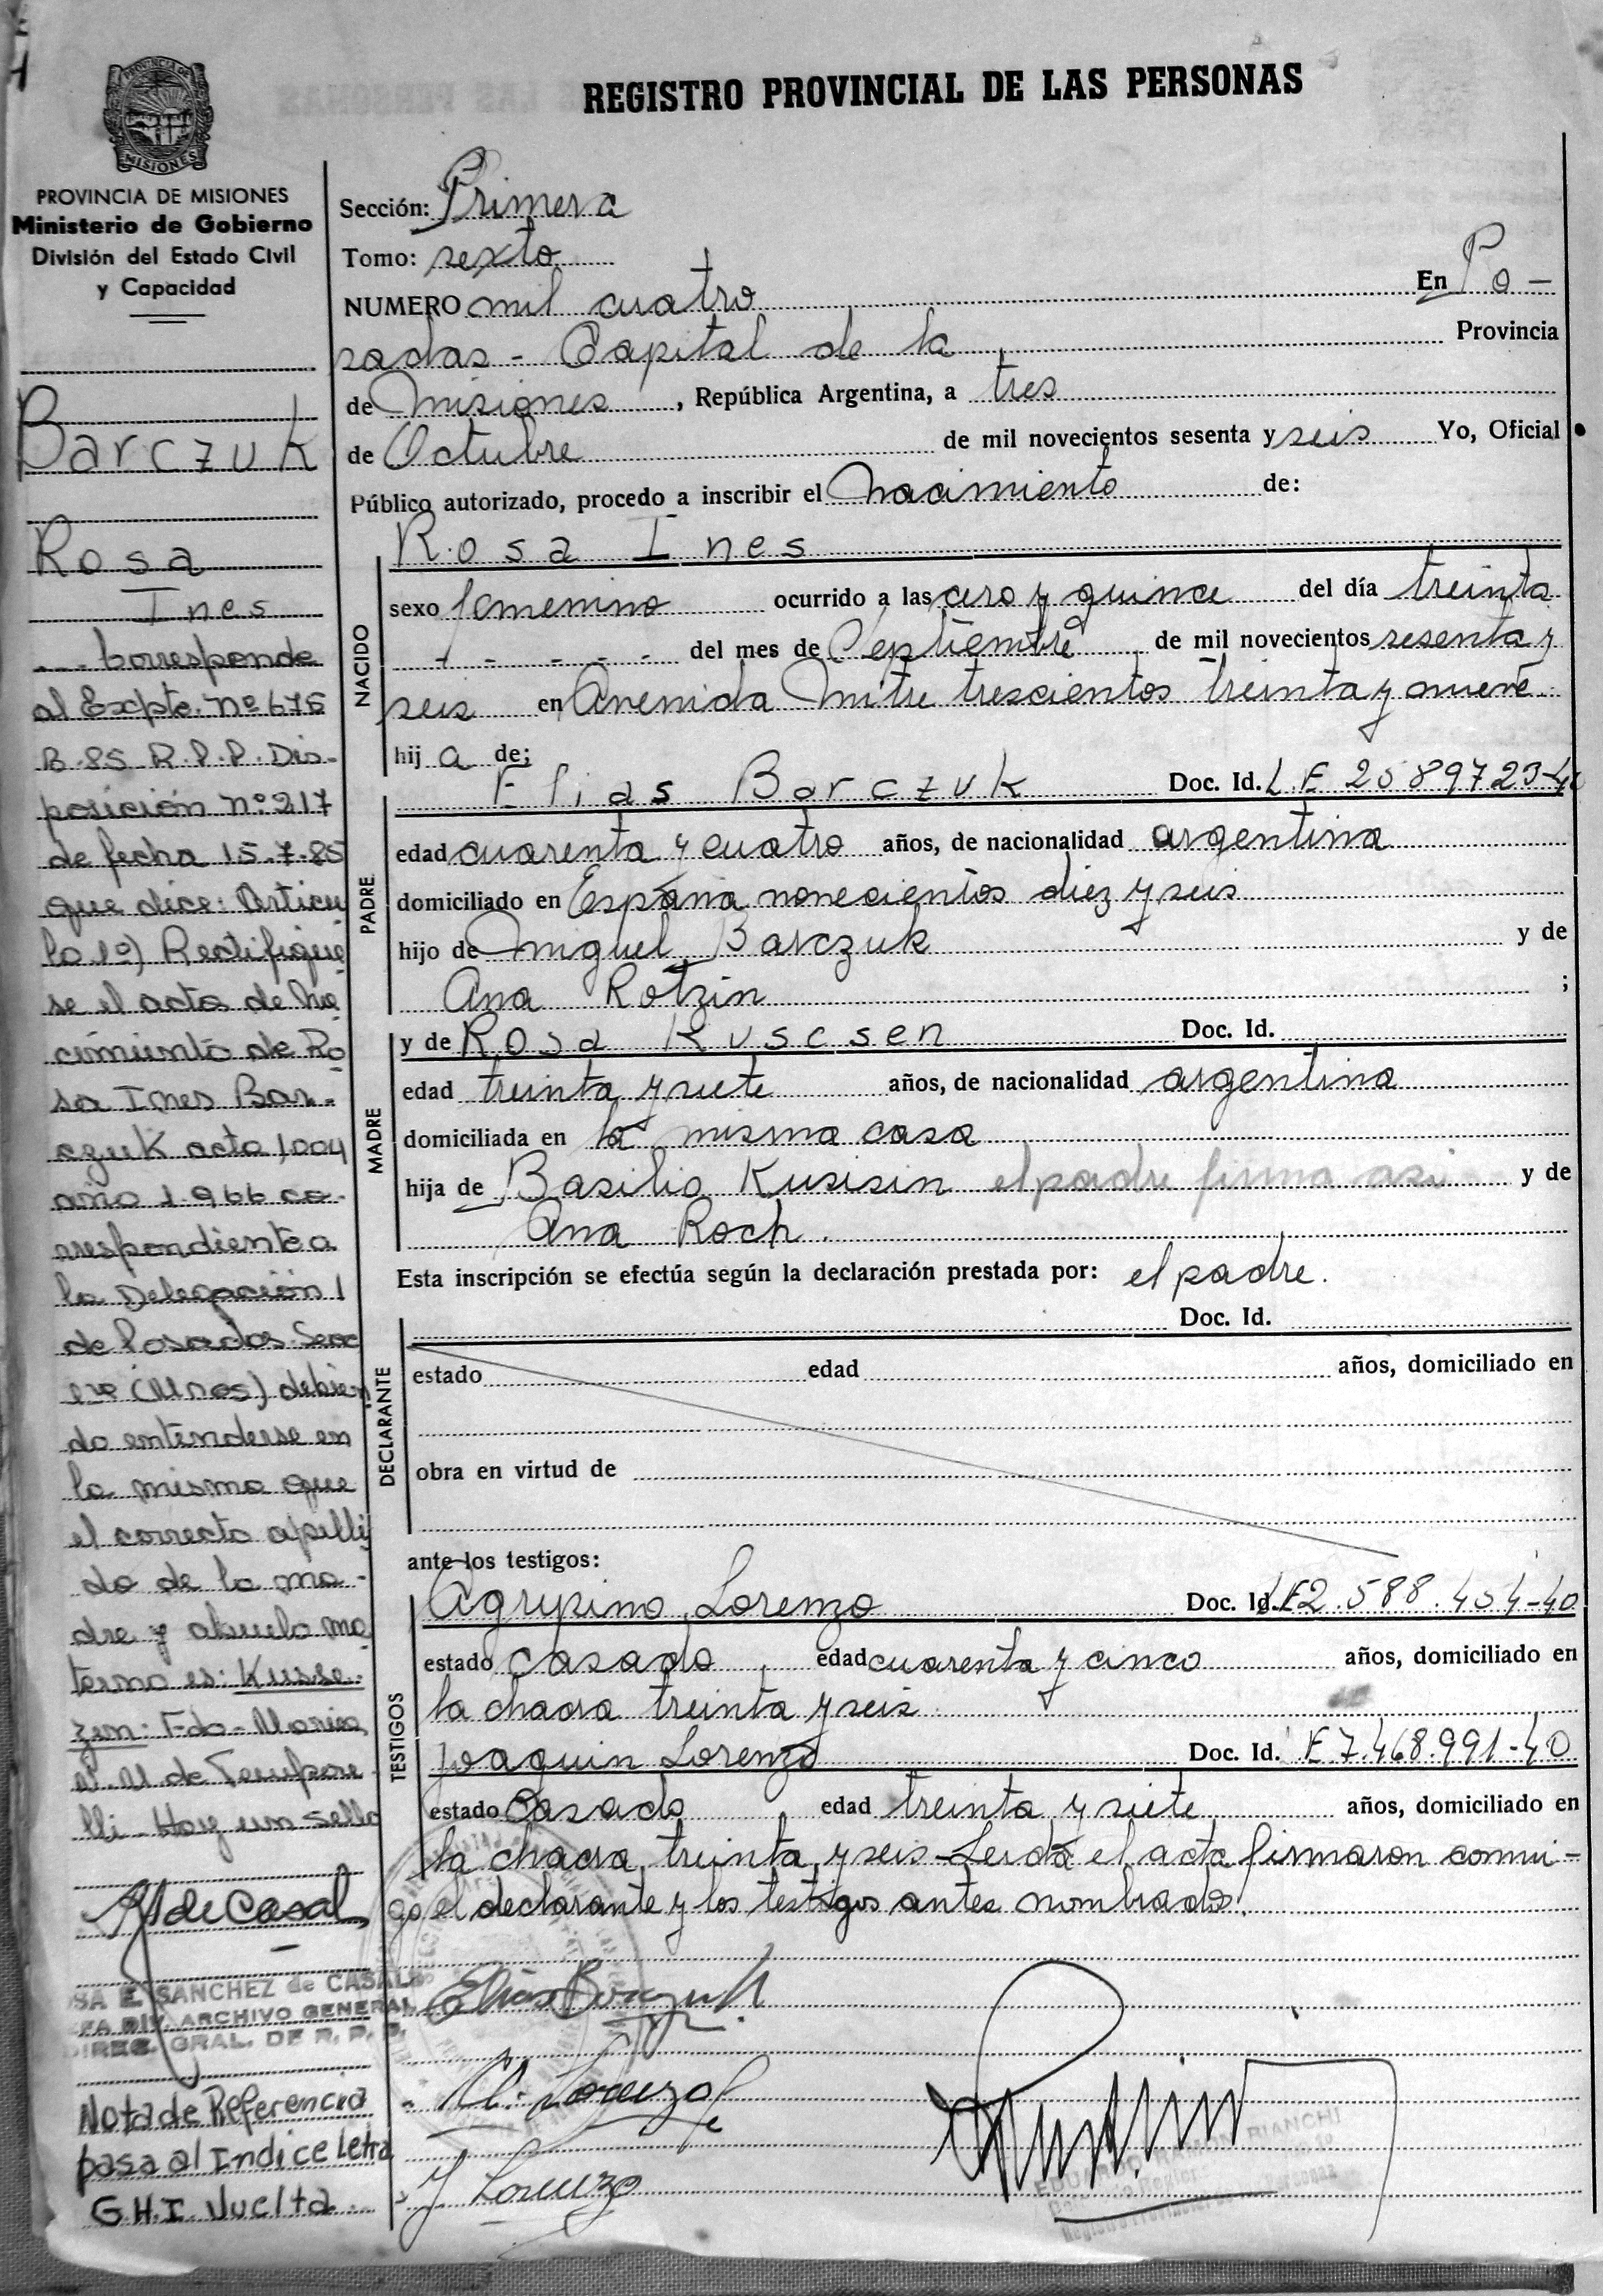 REGISTRO PROVINCIAL DE LAS PERSONAS
PROVINCIA DE
MISIONES
PROVINCIA DE MISIONES
Ministerio de Gobierno
División del Estado Civil
y Capacidad
Barczuk
Rosa
Ines
Corresponde
al Expte. Nº 675
B-85 R.P.P. Dis-
posición nº 217
de fecha 15.7.85
que dice: Articu
lo 1º) Rectifique
se el acta de Na
cimiento de Ro
sa Ines Bar-
czuk acta 1004
año 1966 co-
rrespondiente a
la Delegación 1
de Posadas Secc
1ra (Unos) debien
do entenderse en
la misma que
el correcto apelli
do de la ma-
dre y abuelo ma
terno es: Kusse-
zen: Fdo-Marica
N. N de Tempore
lli- Hay un sello
R S de Casal
SA E. SANCHEZ de CASAL
FA DIV. ARCHIVO GENERAL
DIREC. GRAL. DE R. P. P.
Nota de Referencia
pasa al Indice Letra
G.H.I. Vuelta
Sección: Primera
Tomo: sexto
NUMERO mil cuatro En Po-
sadas - Capital de la Provincia
de Misiones, República Argentina, a tres
de Octubre de mil novecientos sesenta y seis Yo, Oficial
Público autorizado, procedo a inscribir el nacimiento de:
Rosa Ines
NACIDO
sexo femenino ocurrido a las cero y quince del día treinta
- - - - - del mes de Septiembre de mil novecientos sesenta y
seis en Avenida Mitre trescientos treinta y nueve
hij a de;
PADRE
Elias Barczuk Doc. Id. L.E 2589723-40
edad cuarenta y cuatro años, de nacionalidad argentina
domiciliado en España novecientos diez y seis
hijo de Miguel Barczuk y de
Ana Rotzin ;
MADRE
y de Rosa Kuscsen Doc. Id.
edad treinta y siete años, de nacionalidad argentina
domiciliada en la misma casa
hija de Basilio Kusisin el padre firma asi y de
Ana Roch.
Esta inscripción se efectúa según la declaración prestada por: el padre.
DECLARANTE
Doc. Id.
estado edad años, domiciliado en
obra en virtud de
ante los testigos:
TESTIGOS
Agripino Lorenzo Doc. Id. LE2.588.454-40
estado casado, edad cuarenta y cinco años, domiciliado en
la chacra treinta y seis
Joaquin Lorenzo Doc. Id. E 7.468.991-40
estado Casado, edad treinta y siete años, domiciliado en
la chacra treinta y seis-Leida el acta firmaron conmi-
go el declarante y los testigos antes nombrados.
Elias Barczuk
A. Lorenzo
J Lorenzo
EDUARDO RAMON BIANCHI